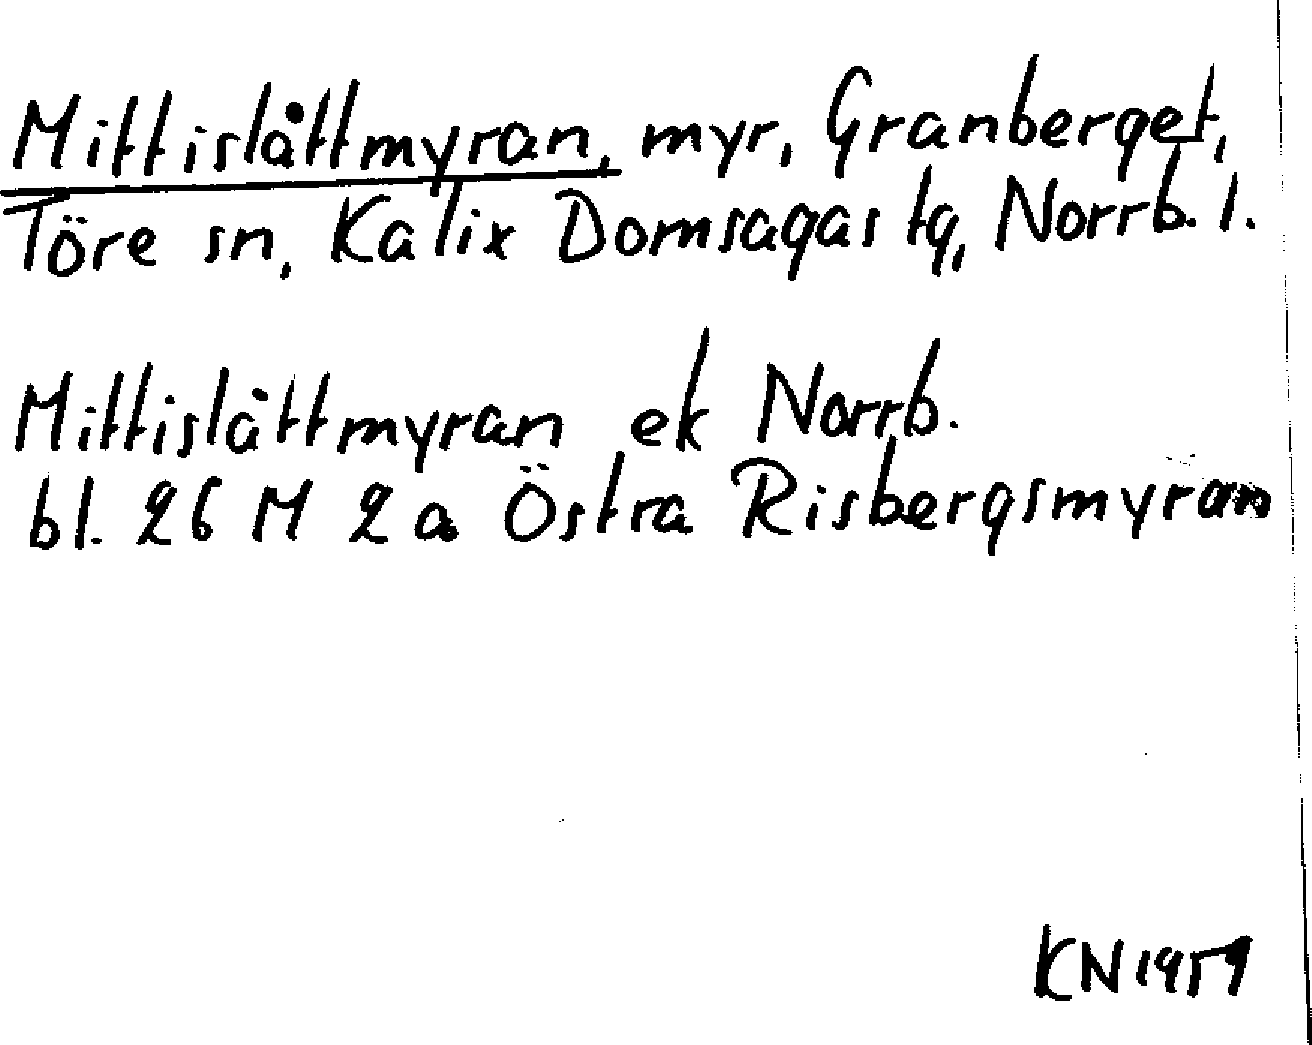 Mittislåttmyran, myr, Granberget,
Töre sn, Kalix Domsagas tg, Norrb. l.
Mittislåttmyran ek Norrb.
bl. 26 M 2 a Östra Risbergsmyran
KN 1959